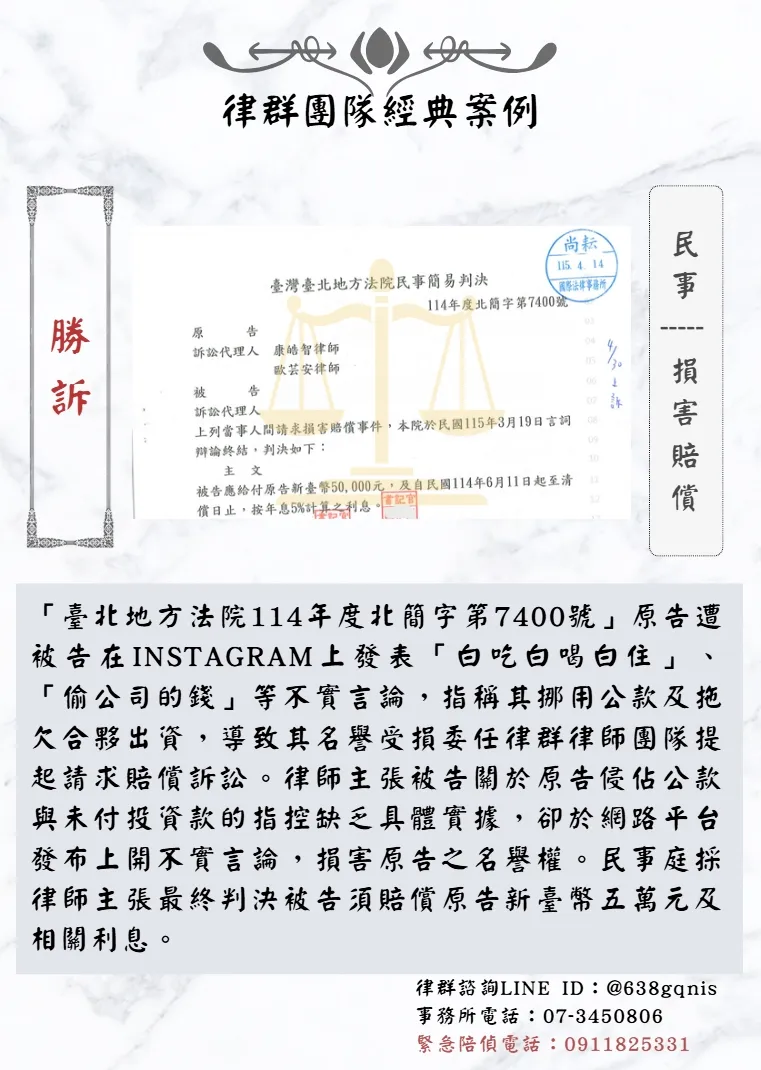 律群團隊經典案例
勝訴
民事
-----
損害賠償
尚耘
115. 4. 14
國際法律事務所
臺灣臺北地方法院民事簡易判決
114年度北簡字第7400號
原 告
訴訟代理人 康皓智律師
歐芸安律師
被 告
訴訟代理人
上列當事人間請求損害賠償事件,本院於民國115年3月19日言詞
辯論終結,判決如下:
主 文
被告應給付原告新臺幣50,000元,及自民國114年6月11日起至清
償日止,按年息5%計算之利息。
書記官
書記官
「臺北地方法院114年度北簡字第7400號」原告遭
被告在INSTAGRAM上發表「白吃白喝白住」、
「偷公司的錢」等不實言論,指稱其挪用公款及拖
欠合夥出資,導致其名譽受損委任律群律師團隊提
起請求賠償訴訟。律師主張被告關於原告侵佔公款
與未付投資款的指控缺乏具體實據,卻於網路平台
發布上開不實言論,損害原告之名譽權。民事庭採
律師主張最終判決被告須賠償原告新臺幣五萬元及
相關利息。
律群諮詢LINE ID:@638gqnis
事務所電話:07-3450806
緊急陪偵電話:0911825331